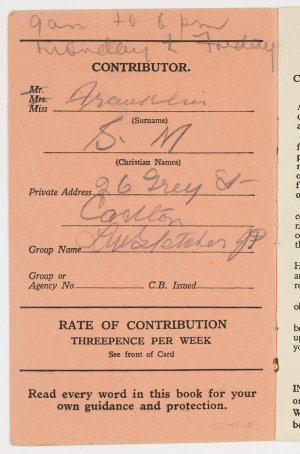 9am to 6 pm
Monday to Friday
CONTRIBUTOR.
Mr.
Mrs.
Miss Franklin
(Surname)
S. M
(Christian Names)
Private Address 26 Grey St
Carlton
Group Name
Group or
Agency No. C.B. Issued
RATE OF CONTRIBUTION
THREEPENCE PER WEEK
See front of Card
Read every word in this book for your
own guidance and protection.